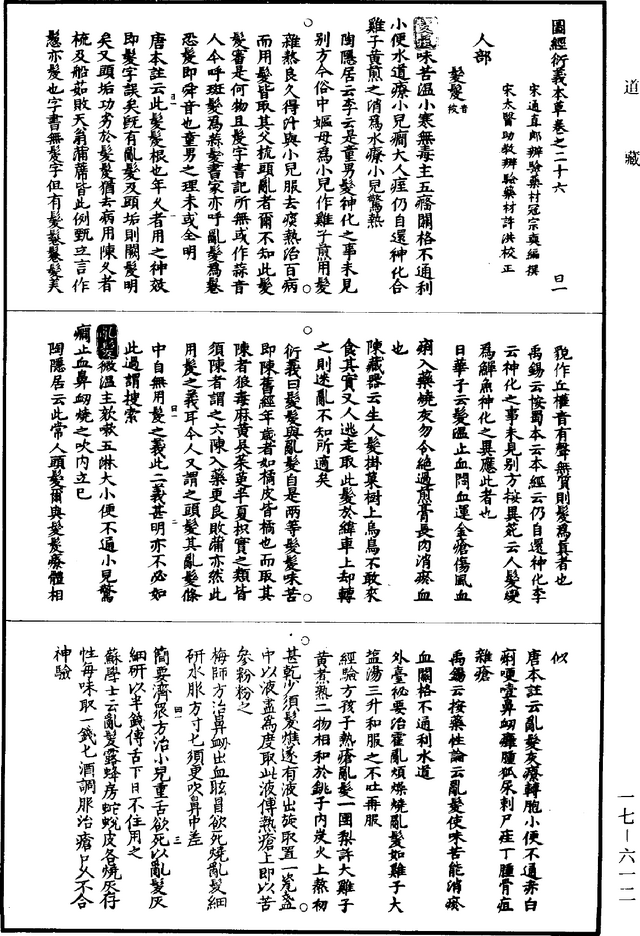 道藏
圖經衍義本草卷之二十六
宋通直郎辨驗藥材寇宗奭編撰
宋太醫助教辨驗藥材許洪校正
曰一
人部
髮髲音被
髮髲味苦溫小寒無毒主五癃關格不通利
小便水道療小兒癇大人痓仍自還神化合
雞子黃煎之消為水療小兒驚熱
陶隱居云李云是童男髮神化之事未見
別方今俗中嫗母為小兒作雞子煎用髮
雜熬良久得汁與小兒服去痰熱治百病
而用髮皆取其父梳頭亂者爾不知此髮
髲審是何物且髲字書記所無或作蒜音
人今呼斑髮為蒜髮書家亦呼亂髮為鬈
恐髲即舜音也童男之理未或全明
唐本註云此髮髲根也年久者用之神效
即髮字誤矣既有亂髮及頭垢則闕髮明
矣又頭垢功劣於髮髲猶去病用陳久者
梳及船茹敗天翁蒲席皆此例甄立言作
鬈亦髮也字書無髲字但有髮鬈鬈髮美
貌作丘權音有聲無質則髲為真者也
禹錫云按蜀本云本經云仍自還神化李
云神化之事未見別方按異苑云人髮變
為鱓魚神化之異應此者也
日華子云髮溫止血悶血運金瘡傷風血
痢入藥燒灰勿令絕過煎膏長肉消瘀血
也
陳藏器云生人髮掛菓樹上烏鳥不敢來
食其實又人逃走取此髮於緯車上却轉
之則迷亂不知所適矣
衍義曰髮髲與亂髮自是兩等髮髲味苦
即陳舊經年歲者如橘皮皆橘也而取其
陳者狼毒麻黃吳茱萸半夏枳實之類皆
須陳者謂之六陳入藥更良敗蒲亦然此
用髲之義耳今人又謂之頭髲其亂髮條
中自無用髲之義此二義甚明亦不必如
此過謂搜索
亂髮微溫主欬嗽五淋大小便不通小兒驚
癇止血鼻衂燒之吹內立已
陶隱居云此常人頭髮爾與髮髲療體相
似
唐本註云亂髮灰療轉胞小便不通赤白
痢哽噎鼻衂癰腫狐尿刺尸疰丁腫骨疽
雜瘡
禹錫云按藥性論云亂髮使味苦能消瘀
血關格不通利水道
外臺祕要治霍亂煩燥燒亂髮如雞子大
鹽湯三升和服之不吐再服
經驗方孩子熱瘡亂髮一團梨許大雞子
黃煮熟二物相和於銚子內炭火上熬初
甚乾少須髮燋遂有液出旋取置一瓷盞
中以液盡為度取此液傅熱瘡上即以苦
參粉粉之
梅師方治鼻衂出血眩冒欲死燒亂髮細
研水服方寸匕須更吹鼻中差
簡要濟眾方治小兒重舌欲死以亂髮灰
細研以半錢傅舌下日不住用之
蘇學士云亂髮露蜂房蛇蛻皮各燒灰存
性每味取一錢匕酒調服治瘡口久不合
神驗
一七—六一二